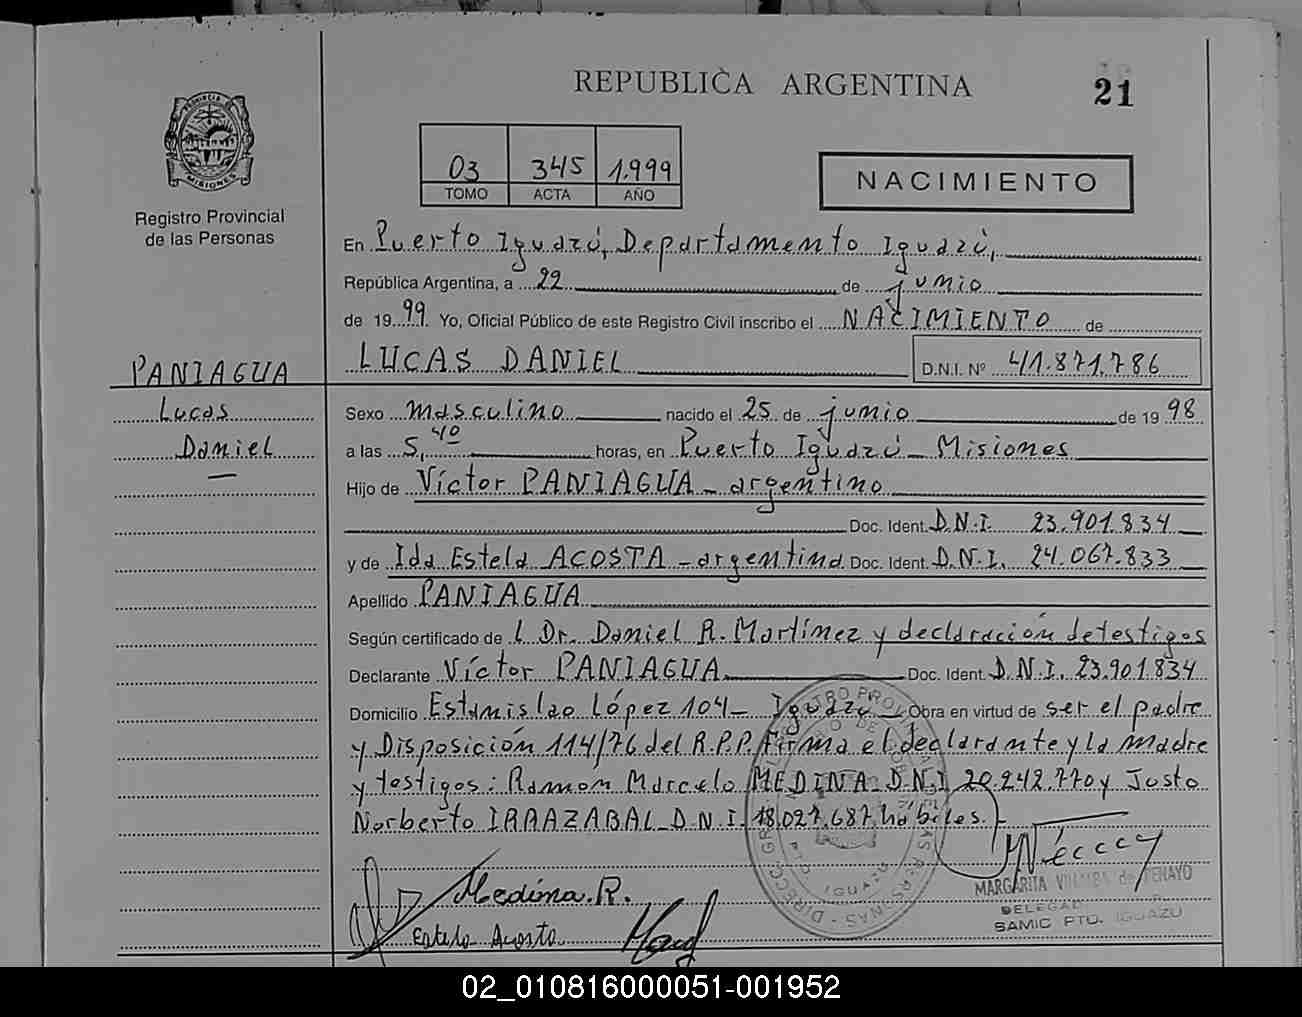 REPUBLICA ARGENTINA
21
PROVINCIA DE
MISIONES
Registro Provincial
de las Personas
03 345 1.999
TOMO ACTA AÑO
NACIMIENTO
En Puerto Iguazú, Departamento Iguazú,
República Argentina, a 22 de junio
de 1999. Yo, Oficial Público de este Registro Civil inscribo el NACIMIENTO de
LUCAS DANIEL D.N.I. Nº 41.871.786
PANIAGUA
Lucas
Daniel
Sexo masculino nacido el 25 de junio de 1998
a las 5,40 horas, en Puerto Iguazú - Misiones
Hijo de Víctor PANIAGUA - argentino
Doc. Ident. D.N.I. 23.901.834
y de Ida Estela ACOSTA - argentina Doc. Ident. D.N.I. 24.067.833
Apellido PANIAGUA
Según certificado de l Dr. Daniel R. Martínez y declaración de testigos
Declarante Víctor PANIAGUA Doc. Ident. D.N.I. 23.901.834
Domicilio Estanislao López 104 - Iguazú - Obra en virtud de ser el padre
y Disposición 114/76 del R.P.P. firma el declarante y la madre
y testigos: Ramon Marcelo MEDINA D.N.I 20.242.770 y Justo
Norberto IRRAZABAL D.N.I. 18.027.687 hábiles.-
Medina. R.
Estela Acosta
MARGARITA VILLALBA de PENAYO
DELEGADA
SAMIC PTO. IGUAZU
02_010816000051-001952